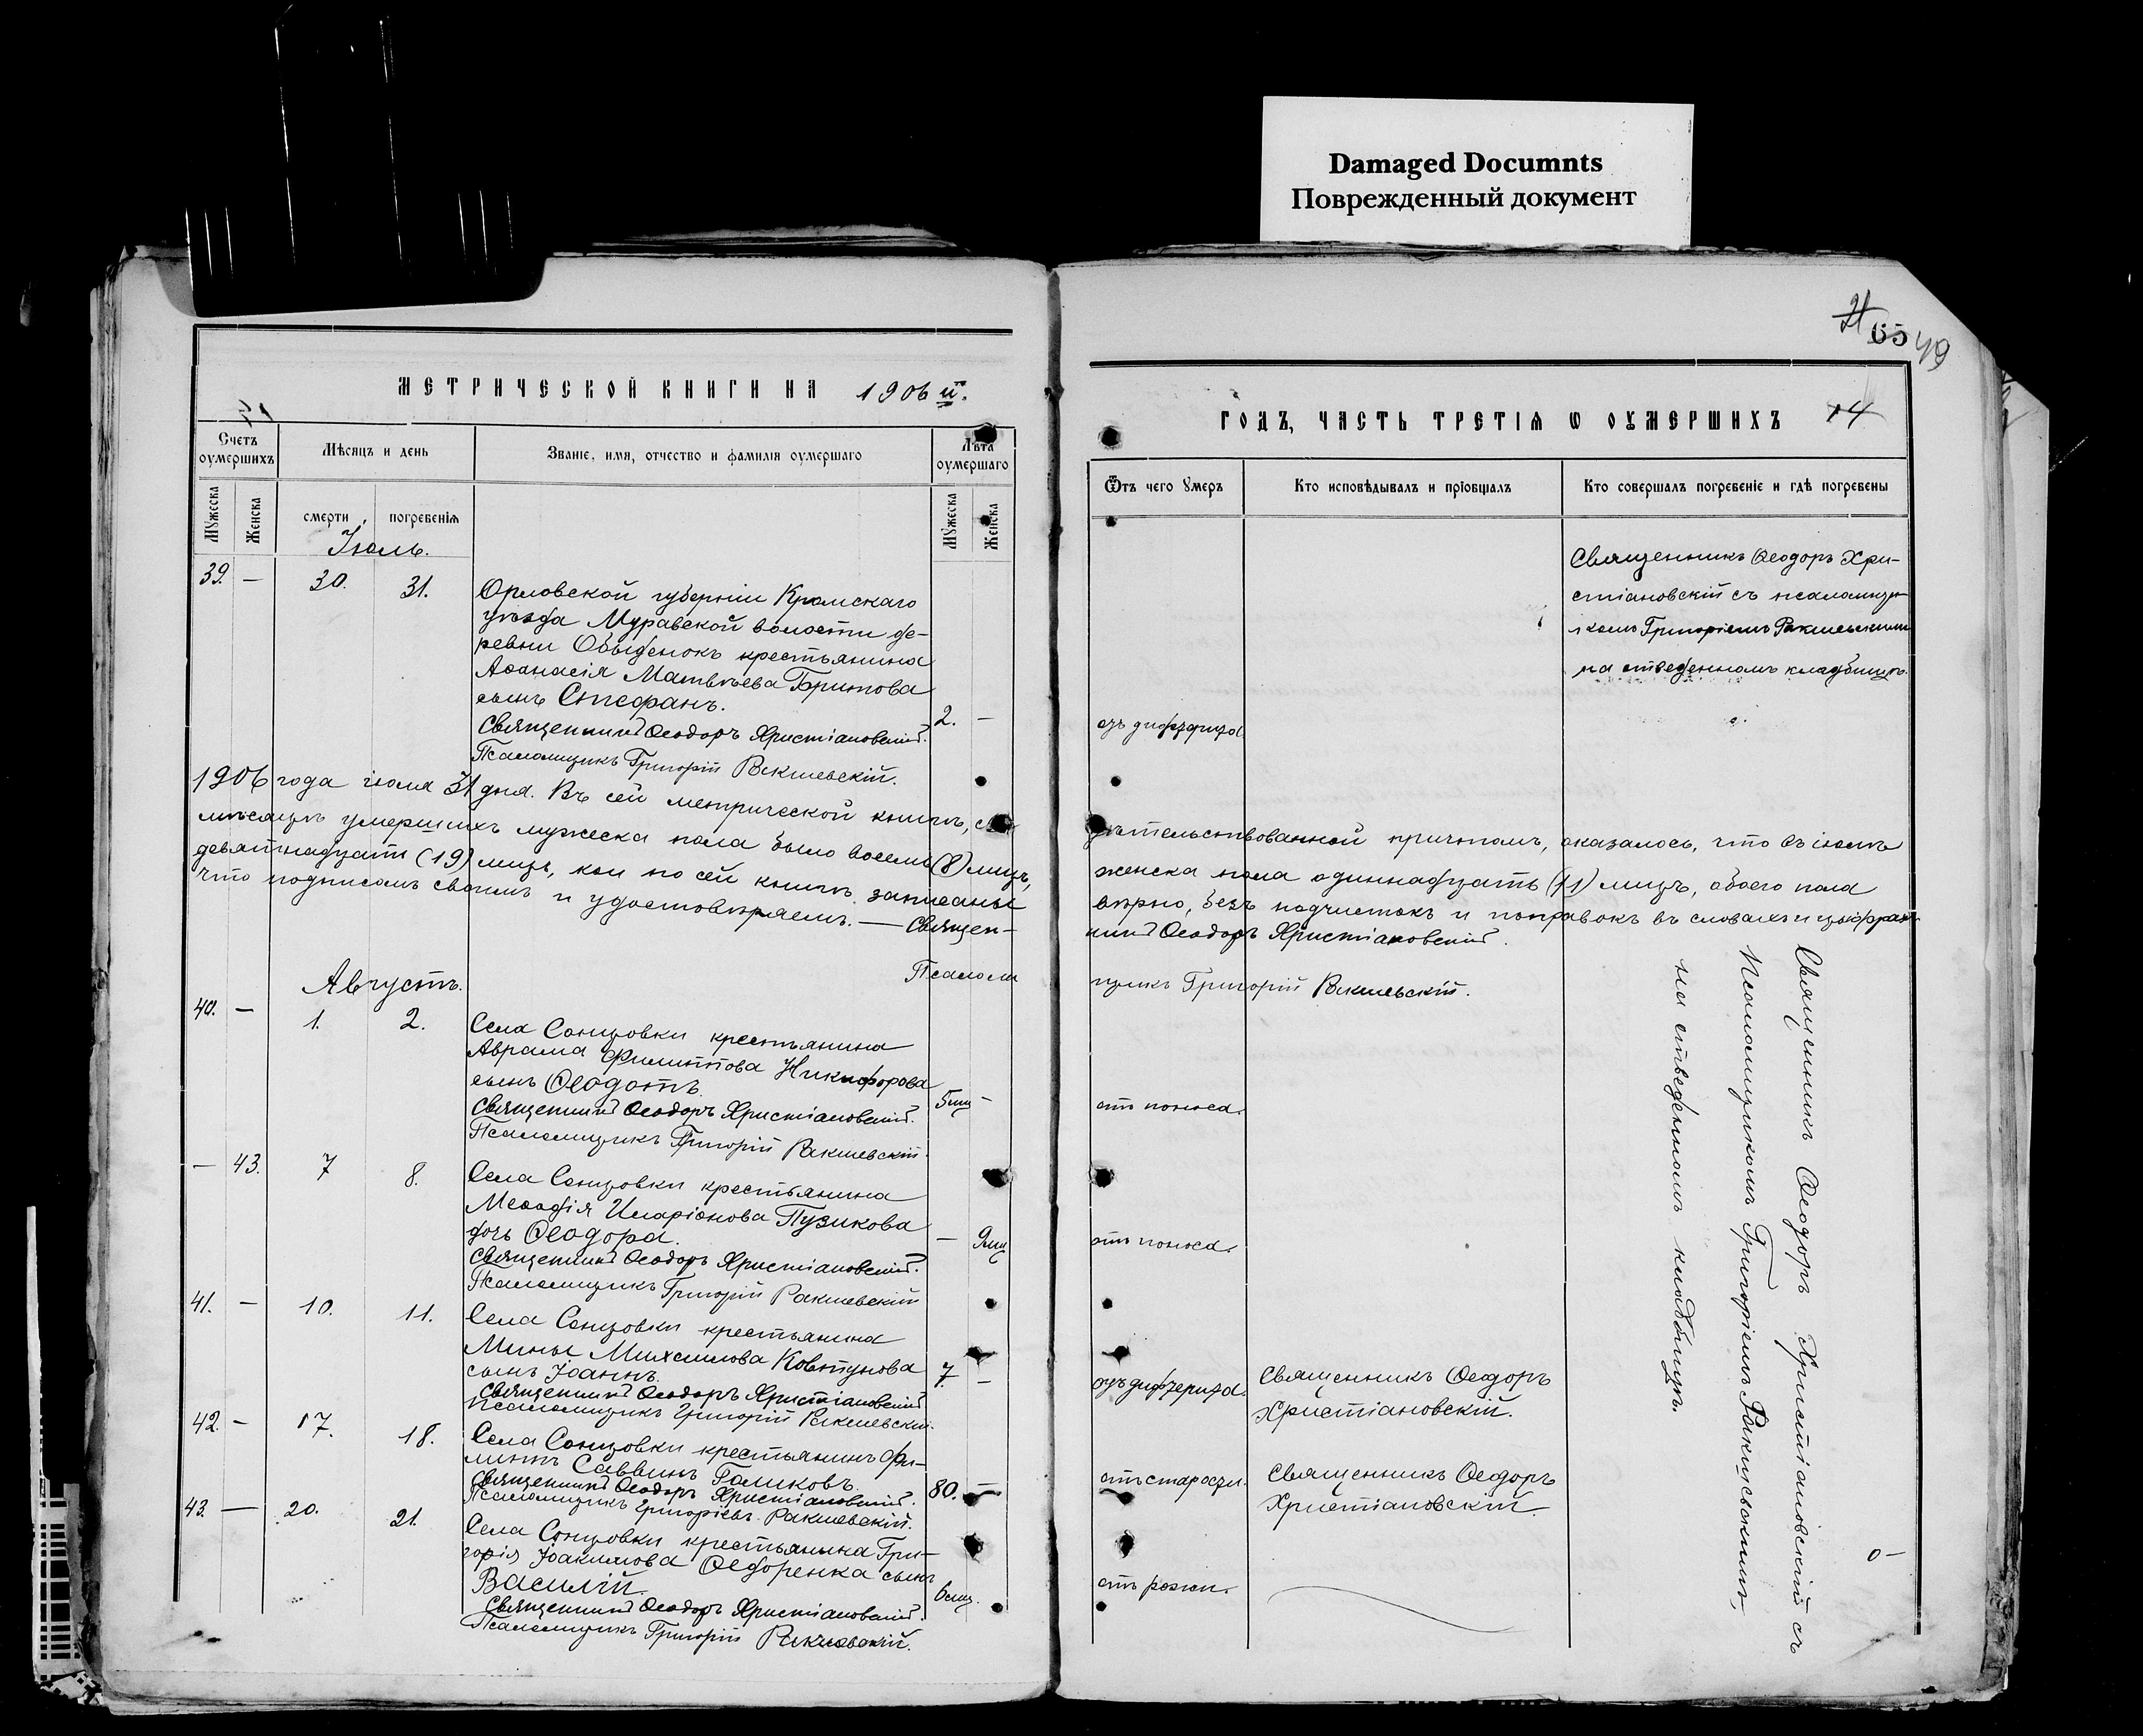 Damaged Documnts
Поврежденный документ
65 49
МЕТРИЧЕСКОЙ КНИГИ НА 1906 й.
Счетъ оумершихъ
Мѣсяцъ и день
Званіе, имя, отчество и фамилія оумершаго
Лѣта оумершаго
Мужеска
Женска
смерти
погребенія
Мужеска
Женска
Іюль.
39. — 30. 31.
Орловской губерніи Кромскаго
уѣзда Муравской волости де-
ревни Объѣденокъ крестьянина
Аѳанасія Матвѣева
сынъ Стефанъ.
2. —
Священникъ Ѳеодоръ Христіановскій.
Псаломщикъ Григорій Ракшевскій.
1906 года іюля 31 дня. Въ сей метрической книгѣ,
мѣсяцѣ умершихъ мужеска пола было восемь (8) лицъ,
девятнадцать (19) лицъ, кои по сей книгѣ записаны
что подписомъ своимъ и удостовѣряемъ. — Священ-
Псалом
Августъ.
40. — 1. 2.
Села Сонцовки крестьянина
Авраама Филиппова Никифорова
сынъ Ѳеодотъ.
5 мц —
Священникъ Ѳеодоръ Христіановскій.
Псаломщикъ Григорій Ракшевскій.
— 43. 7 8.
Села Сонцовки крестьянина
Меѳодія Иларіонова Пузикова
дочь Ѳеодора.
— 9 мц
Священникъ Ѳеодоръ Христіановскій.
Псаломщикъ Григорій Ракшевскій
41. — 10. 11.
Села Сонцовки крестьянина
Мины Михаилова Ковтунова
сынъ Іоаннъ.
7. —
Священникъ Ѳеодоръ Христіановскій
Псаломщикъ Григорій Ракшевскій.
42. — 17. 18.
Села Сонцовки крестьянинъ Фи-
липпъ Саввинъ Голиковъ.
80. —
Священникъ Ѳеодоръ Христіановскій.
Псаломщикъ Григорій Ракшевскій.
43. — 20. 21.
Села Сонцовки крестьянина Гри-
горія Іоакимова Ѳедоренка сынъ
Василій.
6 мц.
Священникъ Ѳеодоръ Христіановскій.
Псаломщикъ Григорій Ракшевскій.
ГОДЪ, ЧАСТЬ ТРЕТІЯ Ѡ ОУМЕРШИХЪ 14
Ѿтъ чего умеръ
Кто исповѣдывалъ и пріобщалъ
Кто совершалъ погребеніе и гдѣ погребены
Священникъ Ѳеодоръ Хри-
стіановскій съ псаломщи-
комъ Григоріемъ Ракшевскимъ
на отведенномъ кладбищѣ.
отъ дифтерита
дѣтельствованной причтомъ, оказалось, что въ іюлѣ
женска пола одиннадцать (11) лицъ, обоего пола
вѣрно, безъ подчистокъ и поправокъ въ словахъ и цыфрахъ
никъ Ѳеодоръ Христіановскій.
щикъ Григорій Ракшевскій.
отъ поноса.
отъ поноса.
отъ дифтерита.
Священникъ Ѳеодоръ
Христіановскій.
отъ старости.
Священникъ Ѳеодоръ
Христіановскій.
отъ рожи.
Священникъ Ѳеодоръ Христіановскій съ
псаломщикомъ Григоріемъ Ракшевскимъ,
на отведенномъ кладбищѣ.